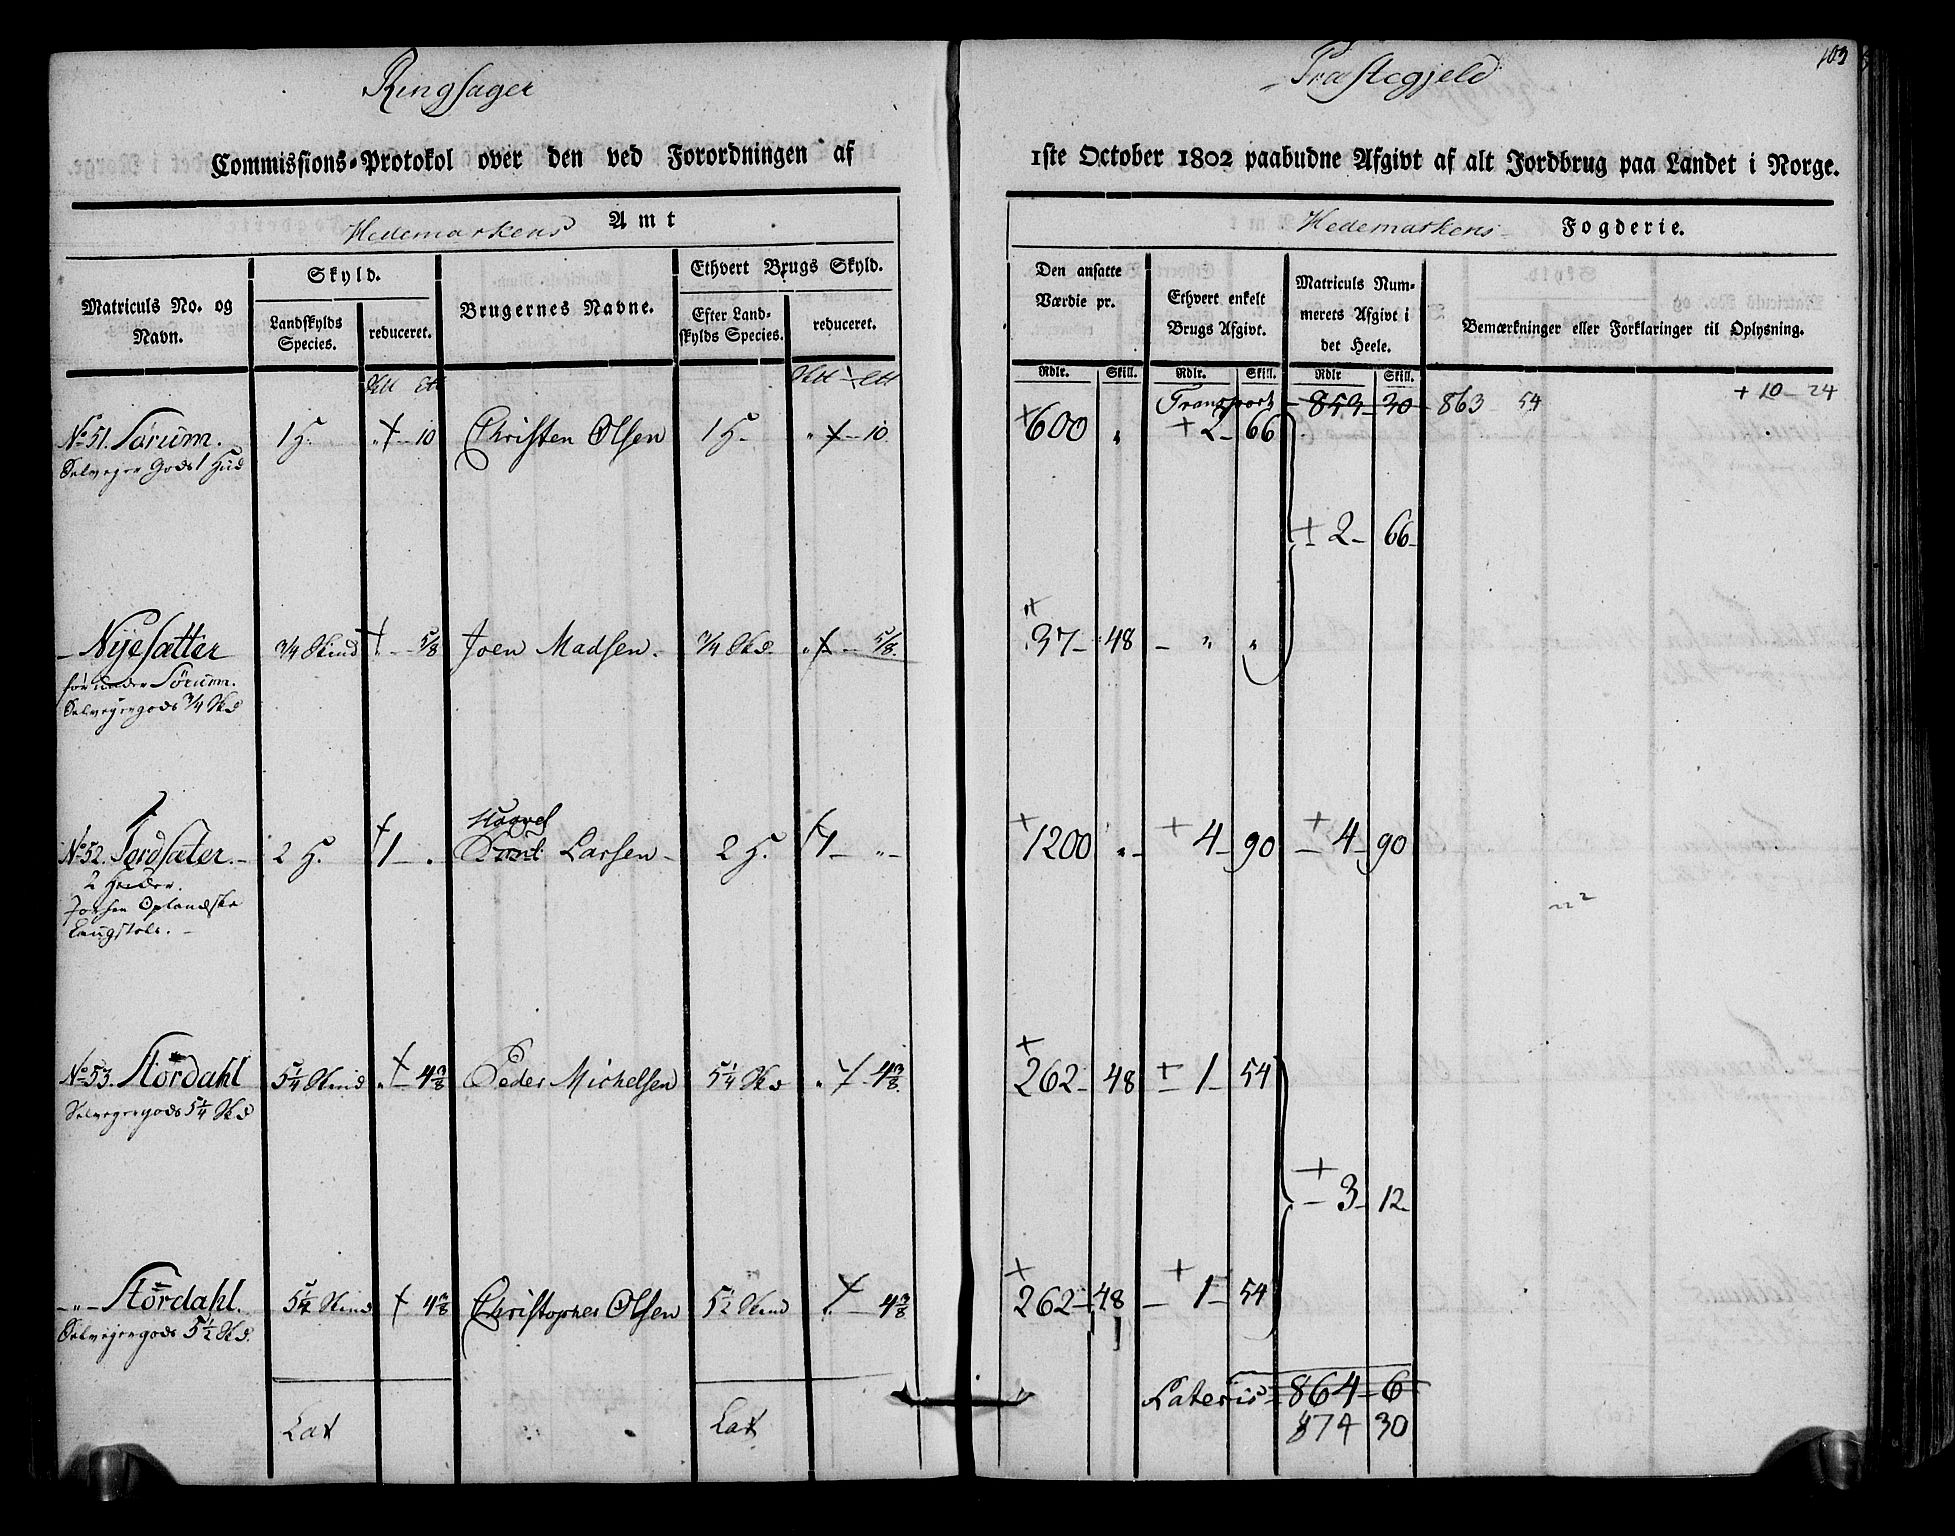 Ringsager
Commissions-Protokol over den ved Forordningen af
Hedemarkens Amt
Matriculs No. og Navn.
Skyld.
Landskylds Species.
reduceret.
Brugernes Navne.
Ethvert Brugs Skyld.
Efter Landskylds Species.
reduceret.
No 51. Sörum. 1 H. " 10 Christen Olsen 1 H. " 10
Selveger Gods 1 Hud
Nyesætter 3/4 Skind 5/8 Joen Madsen. 3/4 Skd. 5/8
för under Sörum.
Selveyergods 3/4 Skd
No 52. Tordsæter. 2 H. 1 - " Larsen 2 H. 1 - "
2 Huder.
Oplandske
Laugstole.
No 53. Stördahl 5 1/4 Skind " 4 3/8 Peder Michelsen 5 1/4 Skd " 4 3/8
Selveyergods 5 1/4 Skd
" Stördahl. 5 1/4 Skind 4 3/8 Christopher Olsen 5 1/2 Skind 4 3/8
Selveyergods 5 1/2 Skd.
Lat Lat
Præstegjeld
103
1ste October 1802 paabudne Afgivt af alt Jordbrug paa Landet i Norge.
Hedemarkens Fogderie.
Den ansatte Værdie pr.
Ethvert enkelt Brugs Afgivt.
Matriculs Nummerets Afgivt i det Heele.
Bemærkninger eller Forklaringer til Oplysning.
Rdlr. Skill. Rdlr. Skill. Rdlr Skill.
Transport 853 30 863 54 + 10 - 24
+ 600 " + 2 - 66
+ 2 - 66
37 - 48 - " "
+ 1200 " + 4 - 90 + 4 - 90
+ 262 - 48 + 1 - 54
+ 3 - 12
+ 262 - 48 + 1 - 54
Lateris 864 - 6
874 30